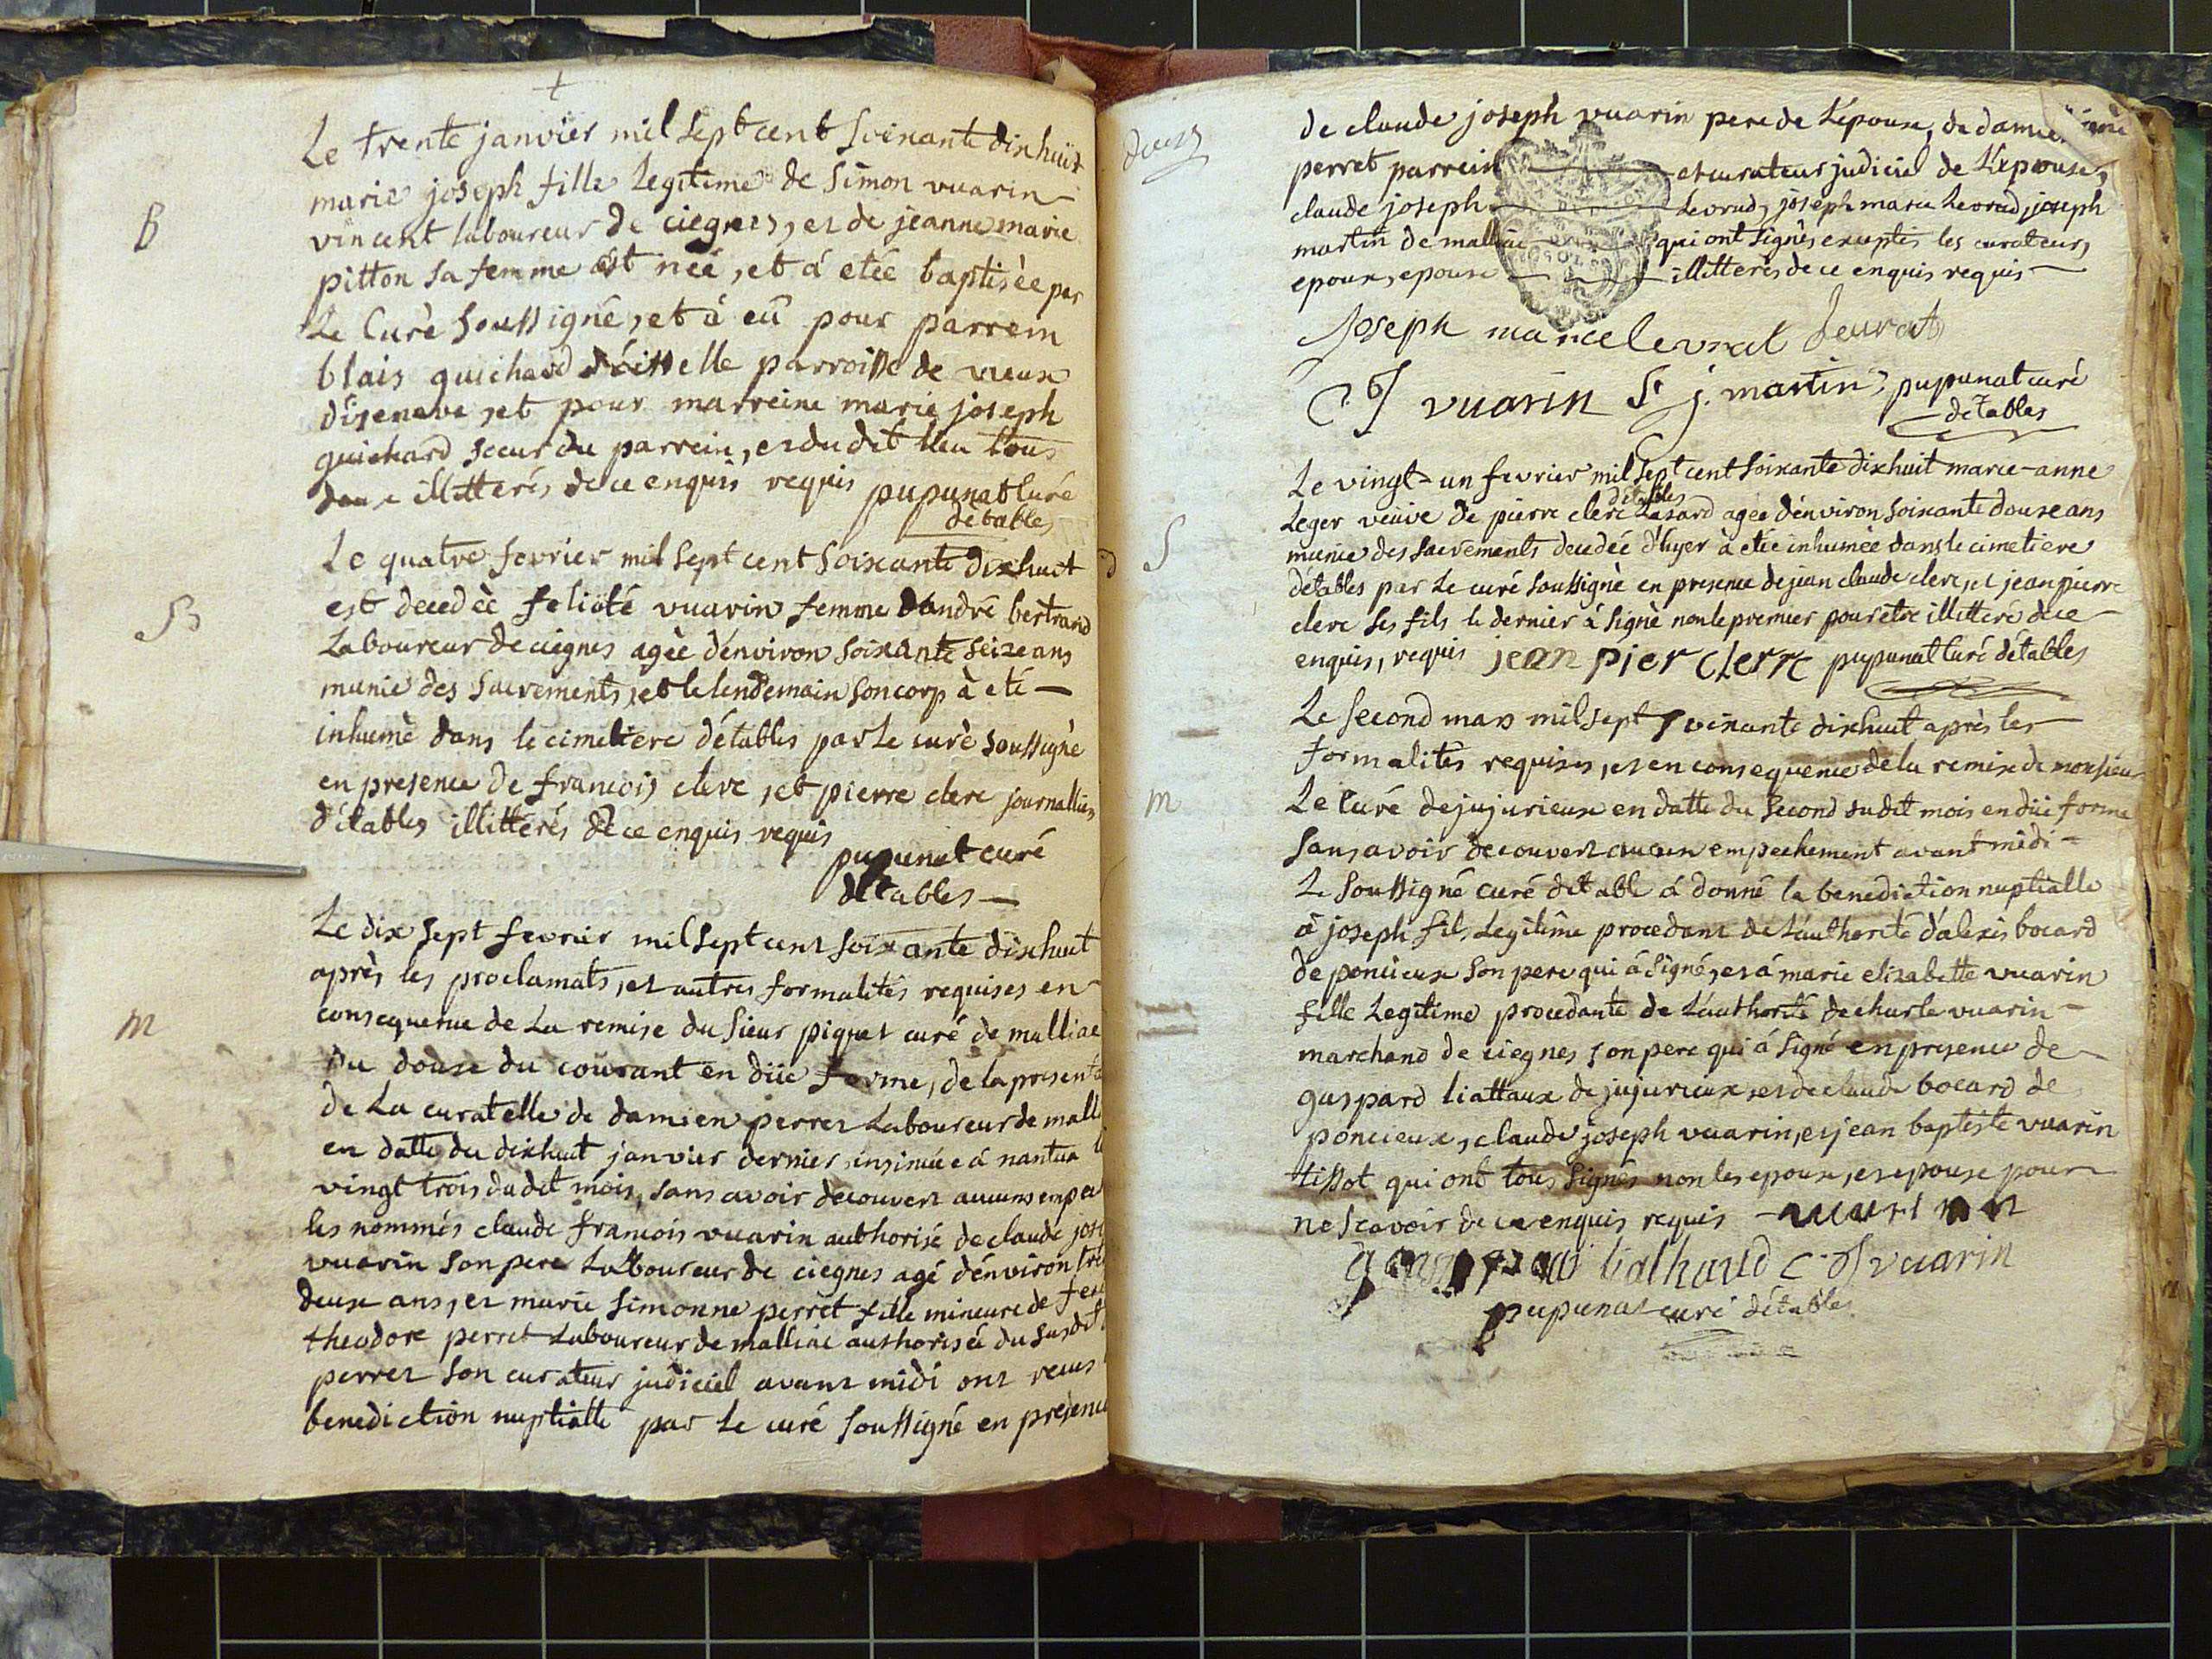 Le trente janvier mil sept cent soixante dixhuit
B
marie joseph fille Legitime de Simon vuarin
vincent laboureur de ciegnes, et de jeanne marie
pitton sa femme est neé, et á etéé baptisèe par
Le Curè soussigné, et à eû pour parrein
blais guichard parroisse de vieux
d'isenave, et pour marreine marie joseph
guichard soeur du parrein, et du dit lieu tous
deux illitterés de ce enquis requis pupunat Curé
détables
Le quatre fevrier mil sept cent soixante dixhuit
S
est decedèe felicité vuarin femme d'andré bertrand
Laboureur de ciegnes agèe d'énviron soixante seize ans
munie des sacrements, et le lendemain son corp à eté
inhumè dans le cimetiere d'étables par Le curè soussigné
en presence de francois clerc, et pierre clerc journallier
d'étables illittérés de ce enquis requis
pupunat curé
détables
Le dix sept fevrier mil sept cent soixante dixhuit
après les proclamats, et autres formalités requises en
M
consequence de La remise du sieur piquet curé de malliac
du douze du courant en düe forme, de la presenta
de La curatelle de damien perret Laboureur de mall
en datte du dixhuit janvier dernier insinuée á nantua
vingt trois dudit mois, sans avoir decouvert aucuns empe
les nommés claude francois vuarin authorisé de claude jose
vuarin son pere Laboureur de ciegnes agé d'énviron tre
deux ans, et marie simonne perret fille mineure de
theodore perret Laboureur de malliac authorisée du susdit
perret son curateur judiciel avant midi ont recus
benediction nuptialle par Le curé soussigné en presence
douze
de claude joseph vuarin pere de L'epoux, de
perret parrein et curateur judiciel de L'épouse,
claude joseph Levrad, joseph marie Levrad, joseph
martin de malliac qui ont signés exceptés les curateur,
epoux, epouse illitterés de ce enquis requis
joseph marie levrat Leurat
C. J vuarin j. martin pupunat curé
détables
Le vingt-un fevrier mil sept cent soixante dixhuit marie-anne
détables
Leger veüve de pierre clerc Lasard ageé d'énviron soixante douze ans
S
munie des sacrements decedeé d'hyer à etée inhumèe dans le cimetiere
détables par Le curé soussigné en presence de jean claude clerc, et jean pierre
clerc ses fils le dernier à signé non le premier pour etre illitteré de ce
enquis, requis jean pier clerc pupunat curé détables
Le second mars mil sept soixante dixhuit après les
formalités requises, et en consequence de la remise de monsieur
M
Le curé de jujurieux en datte du second sudit mois en düe forme
sans avoir decouvert aucun empechement avant midi
Le soussigné curé détable á donné la benediction nuptialle
à joseph fils Legitime procedant de L'authorité d'alexis bocard
de poncieux son pere qui á signé, et á marie elisabette vuarin
fille Legitime procedante de L'authorité de charle vuarin
marchand de ciegnes son pere qui á signé en presence de
guspard liattaux de jujurieux et de claude bocard de
poncieux, claude joseph vuarin, et jean baptiste vuarin
tissot qui ont tous signés non les epoux, et epouse pour
ne scavoir de ce enquis requis
C J vuarin
pupunat curé détables